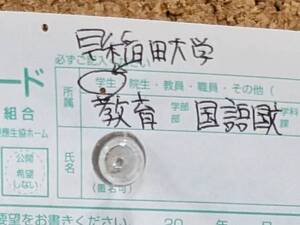 早稲田大学
必ずご記入
ード
所属 学生・院生・教員・職員・その他（
組合
教育 学部 国語国文 学科
療生協ホーム
公開希望しない
氏名
（匿名可）
要望をお書きください 20 年 月